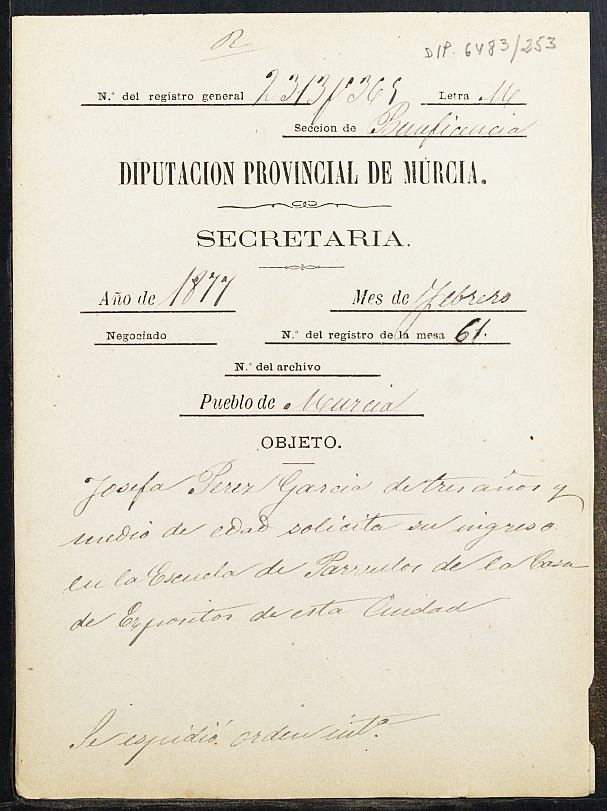 R
DIP. 6483/253
N.º del registro general 2313/365 Letra M
Seccion de Beneficencia
DIPUTACION PROVINCIAL DE MURCIA.
SECRETARIA.
Año de 1877 Mes de Febrero
Negociado N.º del registro de la mesa 61.
N.º del archivo
Pueblo de Murcia
OBJETO.
Josefa Perez Garcia de tres años y
medio de edad solicita su ingreso
en la Escuela de Parvulos de la Casa
de Expositos de esta Ciudad
Se espidió orden int.º